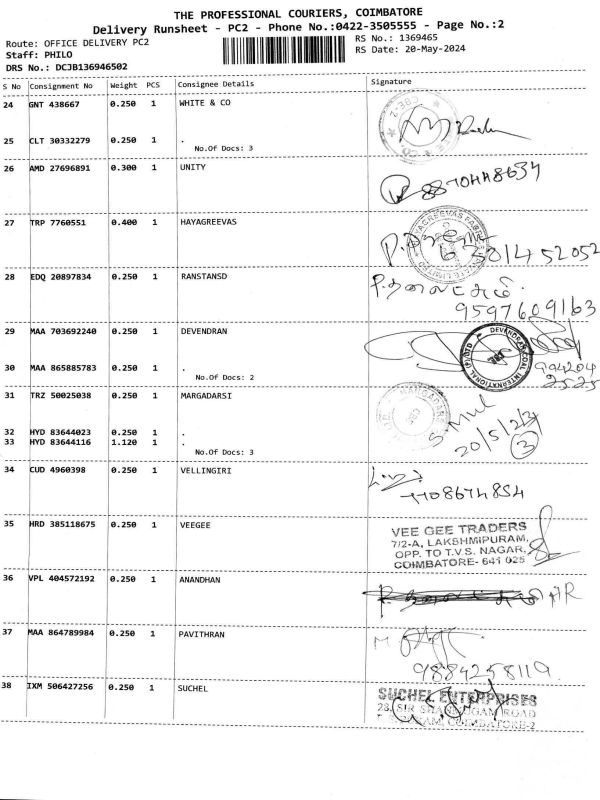 THE PROFESSIONAL COURIERS, COIMBATORE
Delivery Runsheet - PC2 - Phone No.:0422-3505555 - Page No.:2
Route: OFFICE DELIVERY PC2
RS No.: 1369465
Staff: PHILO
RS Date: 20-May-2024
DRS No.: DCJB136946502
S No Consignment No Weight PCS Consignee Details Signature
24 GNT 438667 0.250 1 WHITE & CO
25 CLT 30332279 0.250 1 .
No.Of Docs: 3
26 AMD 27696891 0.300 1 UNITY
27 TRP 7760551 0.400 1 HAYAGREEVAS
28 EDQ 20897834 0.250 1 RANSTANSD
9597609163
29 MAA 703692240 0.250 1 DEVENDRAN
DEVENDRAN COAL INTERNATIONAL (P) LTD
30 MAA 865885783 0.250 1 .
No.Of Docs: 2
31 TRZ 50025038 0.250 1 MARGADARSI
32 HYD 83644023 0.250 1 .
33 HYD 83644116 1.120 1 .
No.Of Docs: 3
20/5/24
3
34 CUD 4960398 0.250 1 VELLINGIRI
35 HRD 385118675 0.250 1 VEEGEE
VEE GEE TRADERS
7/2-A, LAKSHMIPURAM,
OPP. TO T.V.S. NAGAR,
COIMBATORE- 641 025
36 VPL 404572192 0.250 1 ANANDHAN
37 MAA 864789984 0.250 1 PAVITHRAN
9884258119
38 IXM 506427256 0.250 1 SUCHEL
SUCHEL ENTERPRISES
28, SIR SHANMUGAM ROAD
COIMBATORE-2